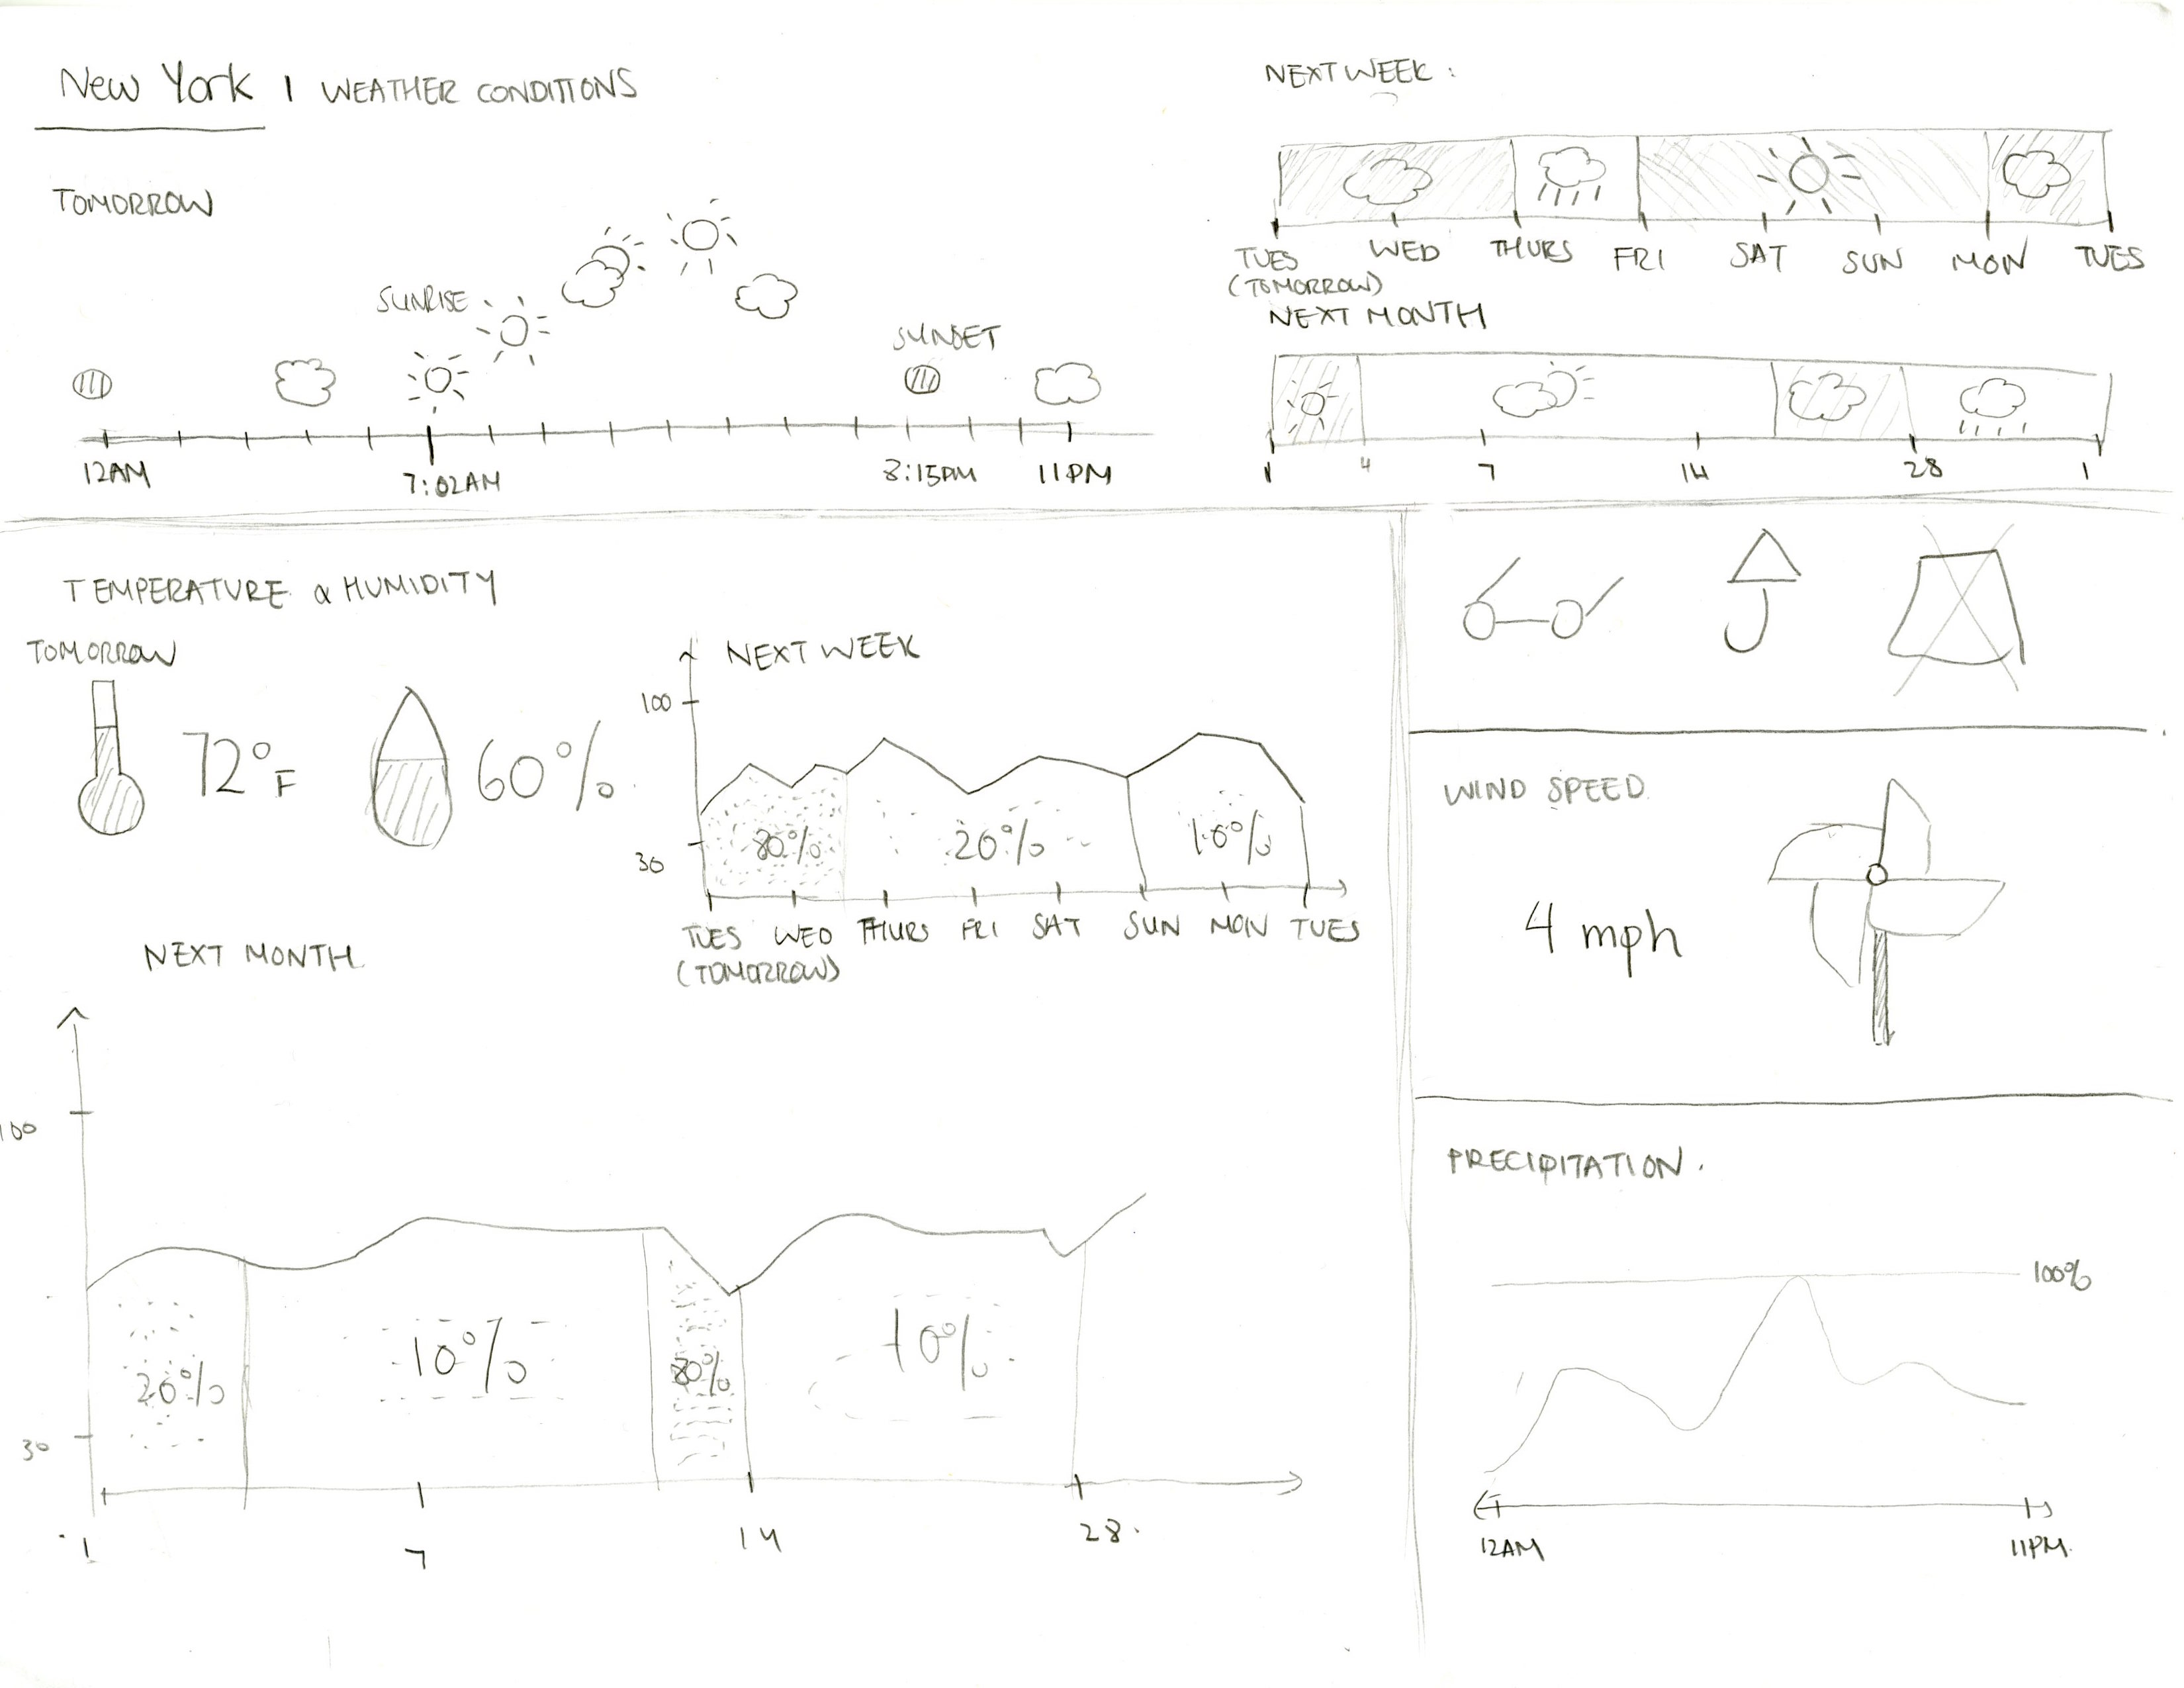 New York | WEATHER CONDITIONS
TOMORROW
SUNRISE
SUNSET
12AM 7:02AM 8:15PM 11PM
NEXT WEEK :
TUES WED THURS FRI SAT SUN MON TUES
(TOMORROW)
NEXT MONTH
1 4 7 14 28 1
TEMPERATURE & HUMIDITY
TOMORROW
72°F 60%
NEXT WEEK
100
80% 20% 10%
30
TUES WED THURS FRI SAT SUN MON TUES
(TOMORROW)
NEXT MONTH
100
20% 10% 80% 10%
30
1 7 14 28
WIND SPEED
4 mph
PRECIPITATION.
100%
12AM 11PM